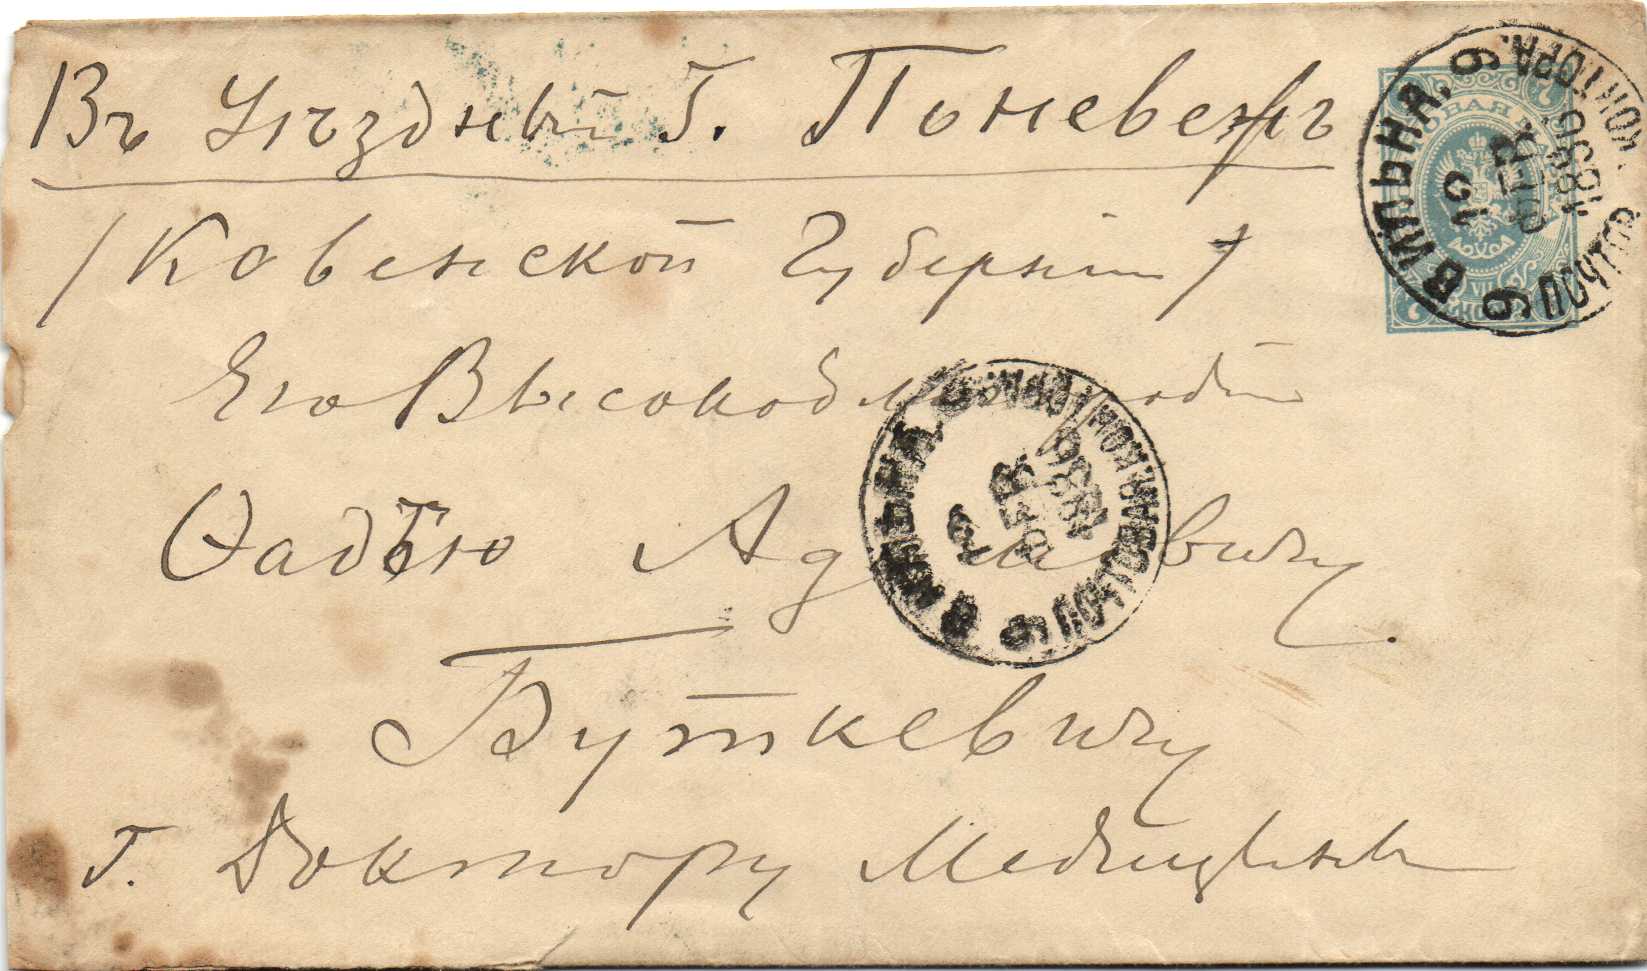 Въ Уѣздный г. Поневежъ
/Ковенской Губерніи/
Его Высокоблагородію
Ѳадѣю Адамовичу
Буткевичу
г. Доктору Медицины
ВИЛЬНА. 6 ПОЧТОВ. КОНТОРА. 6
19
ФЕВ
ПОЧТОВАЯ
7 КОП. 7
ВИЛЬНА. ПОЧТОВАЯ КОНТОРА 6
19
ФЕВ